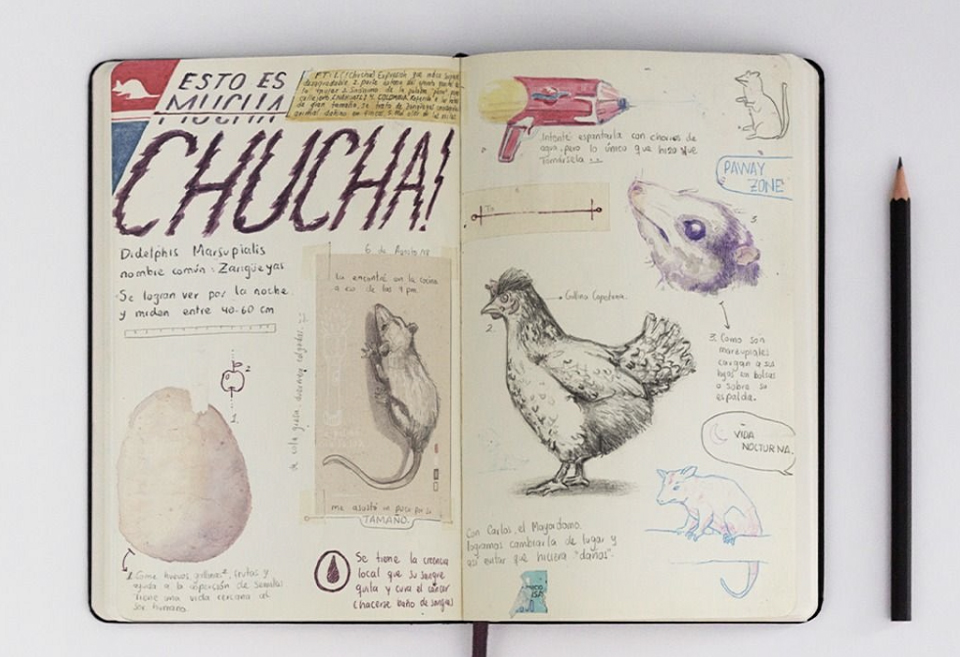 ESTO ES
MUCHA
CHUCHA!
Didelphis Marsupialis
nombre común: Zarigüeyas
Se logran ver por la noche
y miden entre 40-60 cm
6 de
La encontré en la cocina
a eso de las 9 pm
me asustó un poco por su
TAMAÑO.
2
1
1. Come huevos, gallinas², frutas y
ayuda a la dispersión de semillas
Tiene una vida cercana al
ser humano.
Se tiene la creencia
local que su sangre
quita y cura el cáncer
(hacerse baño de sangre)
Intenté espantarla con chorros de
agua, pero lo único que hizo fue
PAWAY
ZONE
3
Gallina Campesina.
2.
3. Como son
marsupiales
cargan a sus
hijos en bolsas
o sobre su
espalda.
VIDA
NOCTURNA.
Con Carlos, el Mayordomo.
logramos cambiarla de lugar y
así evitar que hiciera "daños".